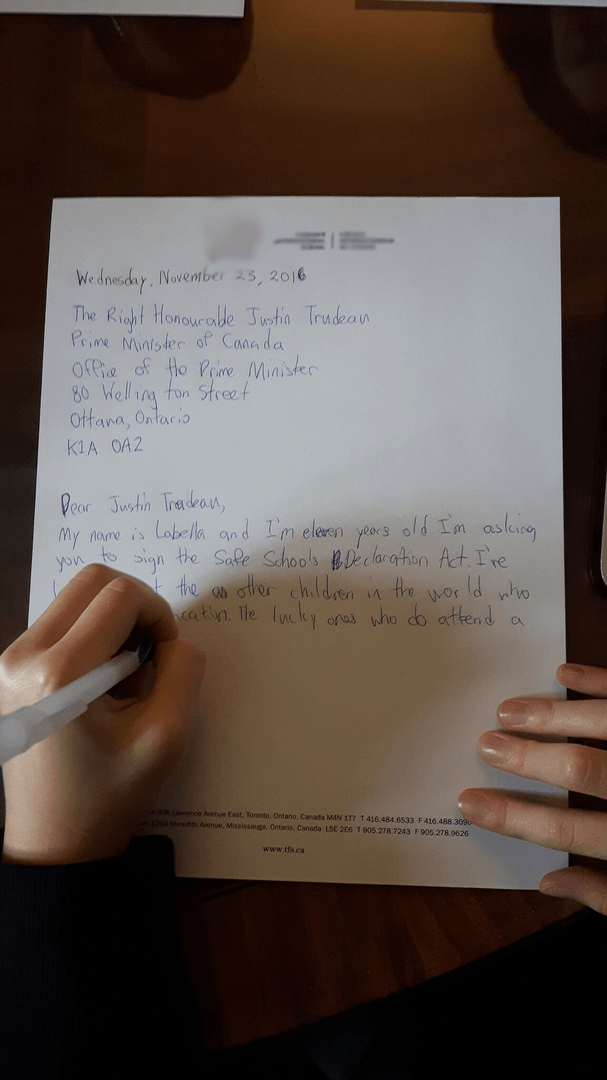 Wednesday, November 23, 2016
The Right Honourable Justin Trudeau
Prime Minister of Canada
Office of the Prime Minister
80 Wellington Street
Ottawa, Ontario
K1A 0A2
Dear Justin Trudeau,
My name is Labella and I'm eleven years old. I'm asking
you to sign the Safe Schools Declaration Act. I've
the other children in the world who
The lucky ones who do attend a
306 Lawrence Avenue East, Toronto, Ontario, Canada M4N 1T7 T 416.484.6533 F 416.488.3090
1293 Meredith Avenue, Mississauga, Ontario, Canada L5E 2E6 T 905.278.7243 F 905.278.9626
www.tfs.ca